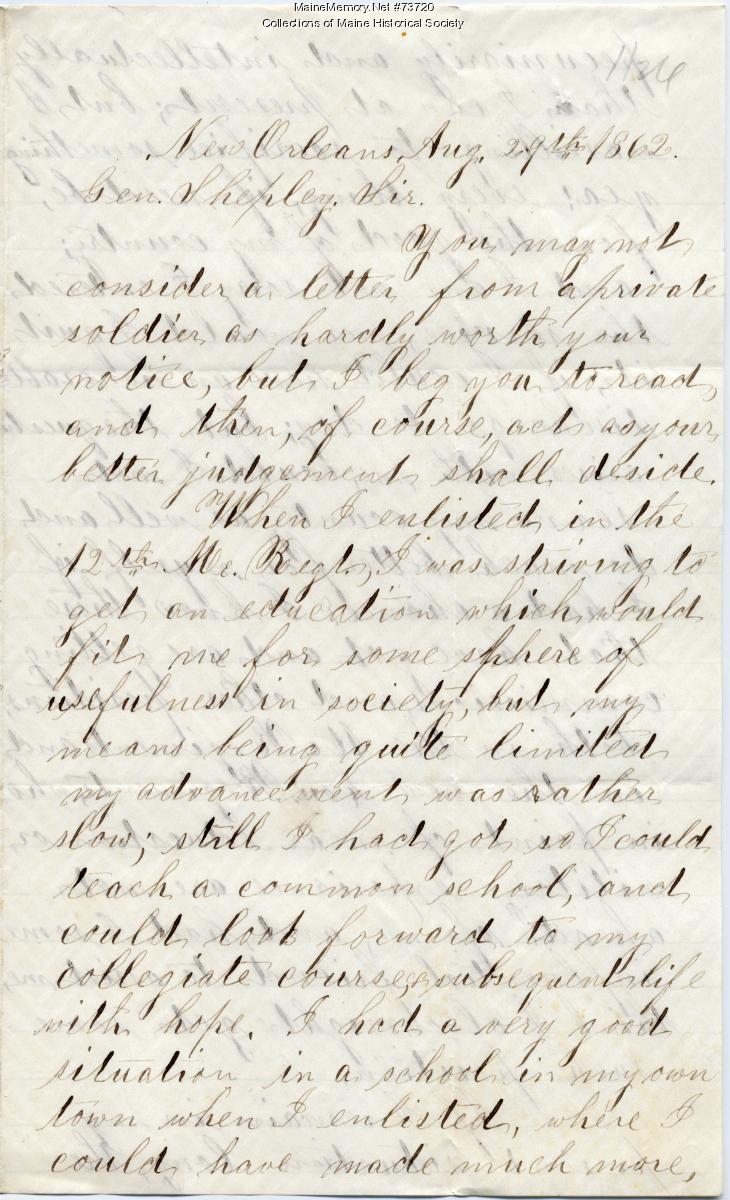 MaineMemory.Net #73720
Collections of Maine Historical Society
New Orleans, Aug. 29th 1862.
Gen. Shepley. Sir.
You may not
consider a letter from a private
soldier as hardly worth your
notice, but I beg you to read,
and then, of course, act as your
better judgement shall deside.
When I enlisted in the
12th Me. Regt., I was striving to
get an education which would
fit me for some sphere of
usefulness in society, but my
means being quite limited
my advancement was rather
slow; still I had got so I could
teach a common school, and
could look forward to my
collegiate course, & subsequent life
with hope. I had a very good
situation in a school in my own
town when I enlisted, where I
could have made much more,